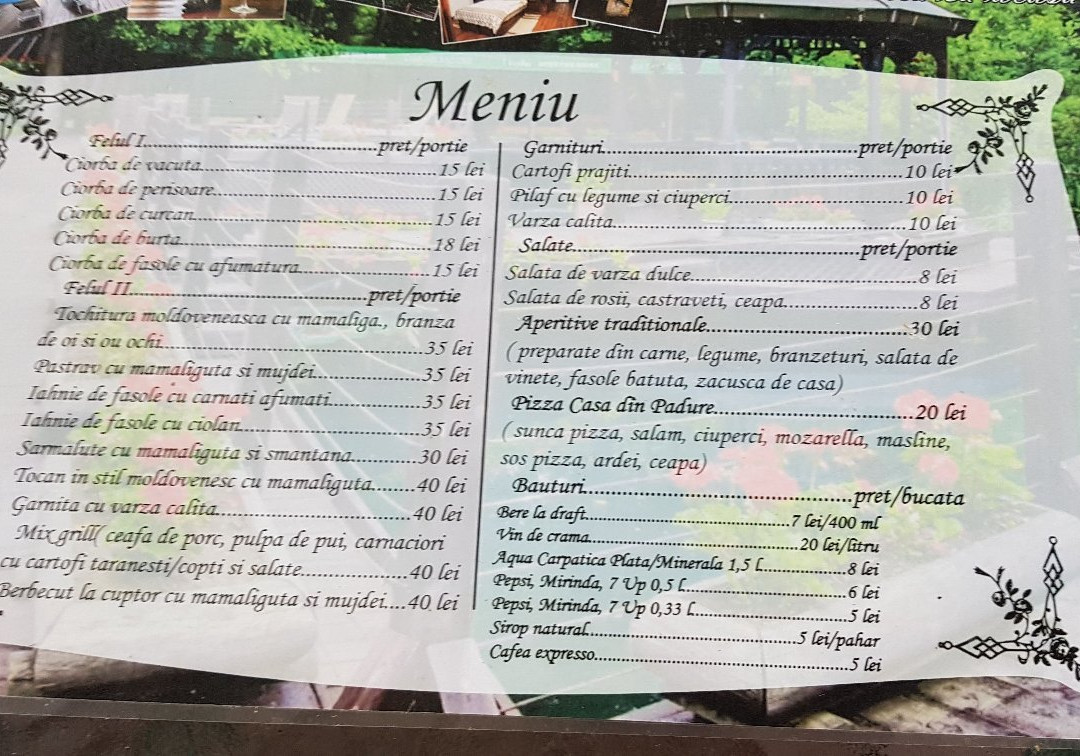 Meniu
Felul I......pret/portie
Ciorba de vacuta......15 lei
Ciorba de perisoare......15 lei
Ciorba de curcan......15 lei
Ciorba de burta......18 lei
Ciorba de fasole cu afumatura......15 lei
Felul II......pret/portie
Tochitura moldoveneasca cu mamaliga., branza
de oi si ou ochi......35 lei
Pastrav cu mamaliguta si mujdei......35 lei
Iahnie de fasole cu carnati afumati......35 lei
Iahnie de fasole cu ciolan......35 lei
Sarmalute cu mamaliguta si smantana......30 lei
Tocan in stil moldovenesc cu mamaliguta......40 lei
Garnita cu varza calita......40 lei
Mix grill( ceafa de porc, pulpa de pui, carnaciori
cu cartofi taranesti/copti si salate......40 lei
Berbecut la cuptor cu mamaliguta si mujdei....40 lei
Garnituri......pret/portie
Cartofi prajiti......10 lei
Pilaf cu legume si ciuperci......10 lei
Varza calita......10 lei
Salate......pret/portie
Salata de varza dulce......8 lei
Salata de rosii, castraveti, ceapa......8 lei
Aperitive traditionale......30 lei
( preparate din carne, legume, branzeturi, salata de
vinete, fasole batuta, zacusca de casa)
Pizza Casa din Padure......20 lei
( sunca pizza, salam, ciuperci, mozarella, masline,
sos pizza, ardei, ceapa)
Bauturi......pret/bucata
Bere la draft......7 lei/400 ml
Vin de crama......20 lei/litru
Aqua Carpatica Plata/Minerala 1,5 L......8 lei
Pepsi, Mirinda, 7 Up 0,5 L......6 lei
Pepsi, Mirinda, 7 Up 0,33 L......5 lei
Sirop natural......5 lei/pahar
Cafea expresso......5 lei